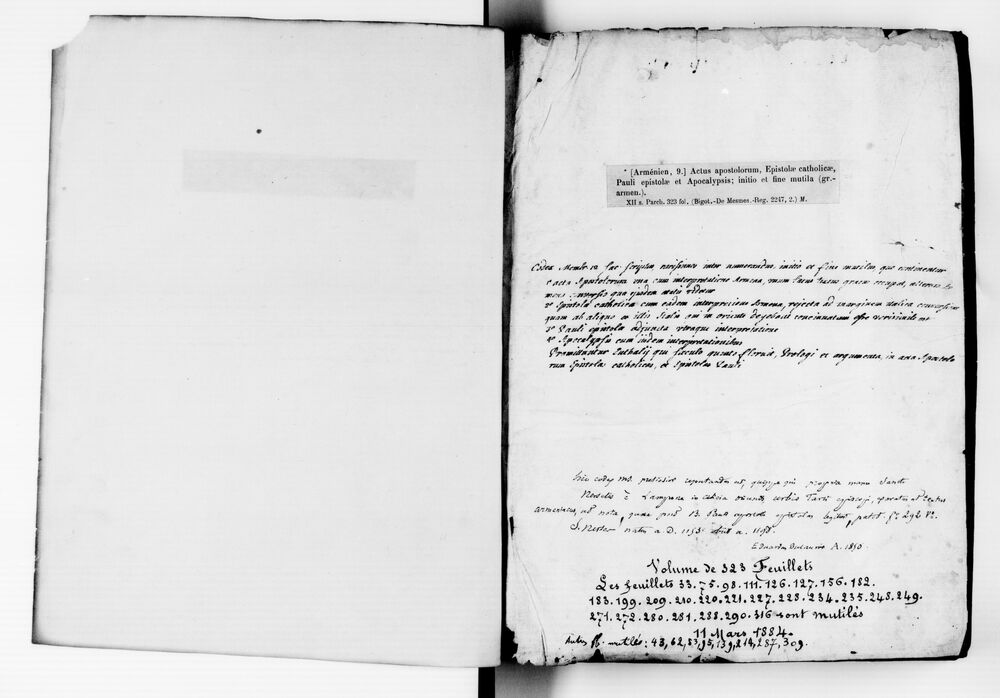 * [Arménien, 9.] Actus apostolorum, Epistolæ catholicæ,
Pauli epistolæ et Apocalypsis; initio et fine mutila (gr.-
armen.).
XII s. Parch. 323 fol. (Bigot.-De Mesmes.-Reg. 2247, 2.) M.
Codex Membr. 12 scriptus, inter numerandus, initio et fine mutilus, quo continentur
acta Apostolorum una cum interpretatione Armena, graeca
2° Epistolae catholicae cum eadem interpretatione Armena, rejecta ad marginem
quam ab aliquo ex in oriente esse verisimile est
3° Pauli epistolae adjuncta utraque interpretatione
4° Apocalypsis cum iisdem interpretationibus
Praemittuntur Euthalij qui saeculo quinto floruit, Prologi et argumenta, in acta Apostolo
rum Epistolas catholicas, et Epistolas Pauli
Hic codex ms. pretiosior reputandus est, quippe qui propria manu Sancti
Nersetis Lampron in Cilicia Tarsi episcopi,
armeniacus, ut nota, quae epistolas legitur, patet. f° 292 v°.
S. Nerses natus a D. 1153 obiit a. 1198.
Eduardus Dulaurier A. 1850.
Volume de 323 Feuillets
Les feuillets 33.75.98.111.126.127.156.182.
183.199.209.210.220.221.227.228.234.235.248.249.
271.272.280.281.288.290.316 sont mutilés
11 Mars 1884.
Autres ff. mutilés: 43, 62, 83, 95, 139, 214, 287, 309.